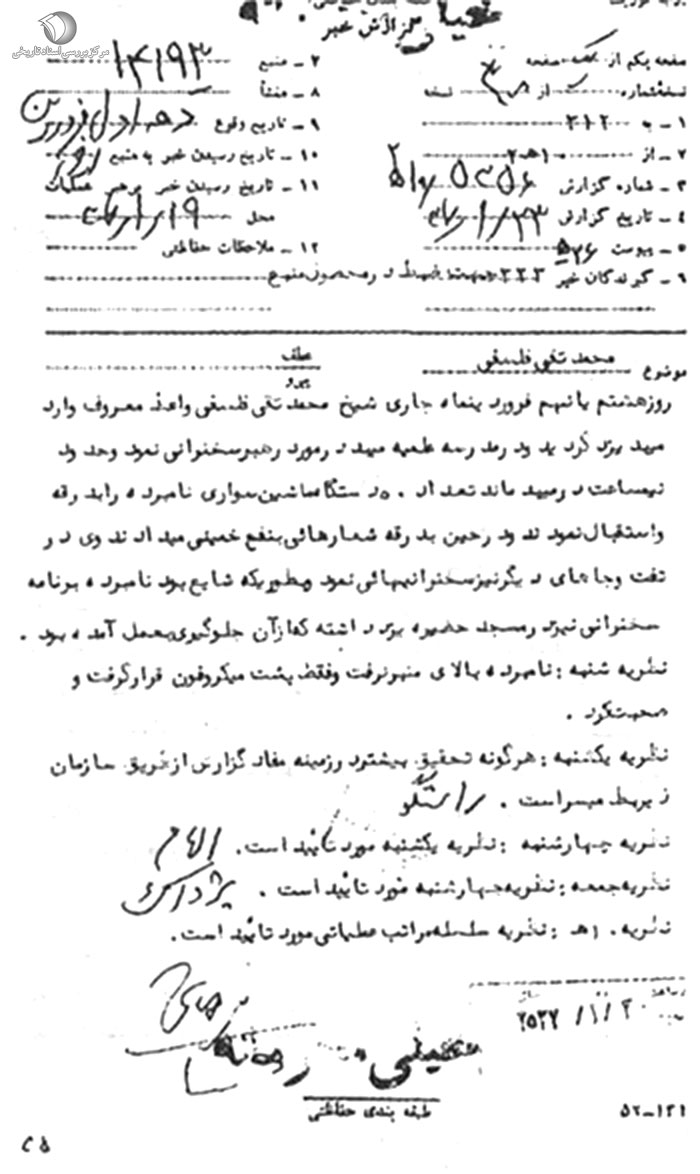 مرکز بررسی اسناد تاریخی
گزارش خبر
صفحه یکم از یک صفحه
نسخه شماره از نسخه
۱ ـ به ۳۱۲
۲ ـ از ۱۰هـ۲
۳ ـ شماره گزارش
۴ ـ تاریخ گزارش
۵ ـ پیوست
۶ ـ گیرندگان خبر ۳۳۳ جهت ضبط در محصول منبع
۷ ـ منبع ۱۴۱۹۳
۸ ـ منشأ
۹ ـ تاریخ وقوع دهه اول فروردین
۱۰ ـ تاریخ رسیدن خبر به منبع
۱۱ ـ تاریخ رسیدن خبر برهبر عملیات
محل
۱۲ ـ ملاحظات حفاظتی
موضوع محمد تقی فلسفی
عطف
پیرو
روز هشتم یا نهم فرورد ینماه جاری شیخ محمد تقی فلسفی واعظ معروف وارد
میبد یزد گرد ید ود رمد رسه علمیه میبد د رمورد رهبر سخنرانی نمود وحد ود
نیمساعت د رمیبد ماند تعد اد ۵۰ د ستگاه ماشین سواری نامبرد ه راید رقه
واستقبال نمود ند ود رحین بد رقه شعارهائی بنفع خمینی مید اد ند وی د ر
تفت وجا های د یگر نیز سخنرانیهائی نمود وبطوریکه شایع بود نامبرد ه برنامه
سخنرانی نیزد رمسجد حضیره یزد د اشته که ازآن جلوگیری بعمل آمد ه بود .
نظریه شنبه : نامبرد ه بالا ی منبر نرفت وفقط پشت میکروفون قرار گرفت و
صحبت کرد .
نظریه یکشنبه : هرگونه تحقیق بیشترد رزمینه مفاد گزارش از طریق سا زمان
ذ یربط میسراست . راستگو
نظریه چهارشنبه : نظریه یکشنبه مورد تأئید است . الهام
نظریه جمعه : نظریه چهارشنبه مورد تأئید است . پژواک
نظریه ۱۰هـ : نظریه سلسله مراتب عملیاتی مورد تائید است .
۲۵۳۷/۱/۲۰
خیلی محرمانه
طبقه بندی حفاظتی
۵۲-۱۲۱